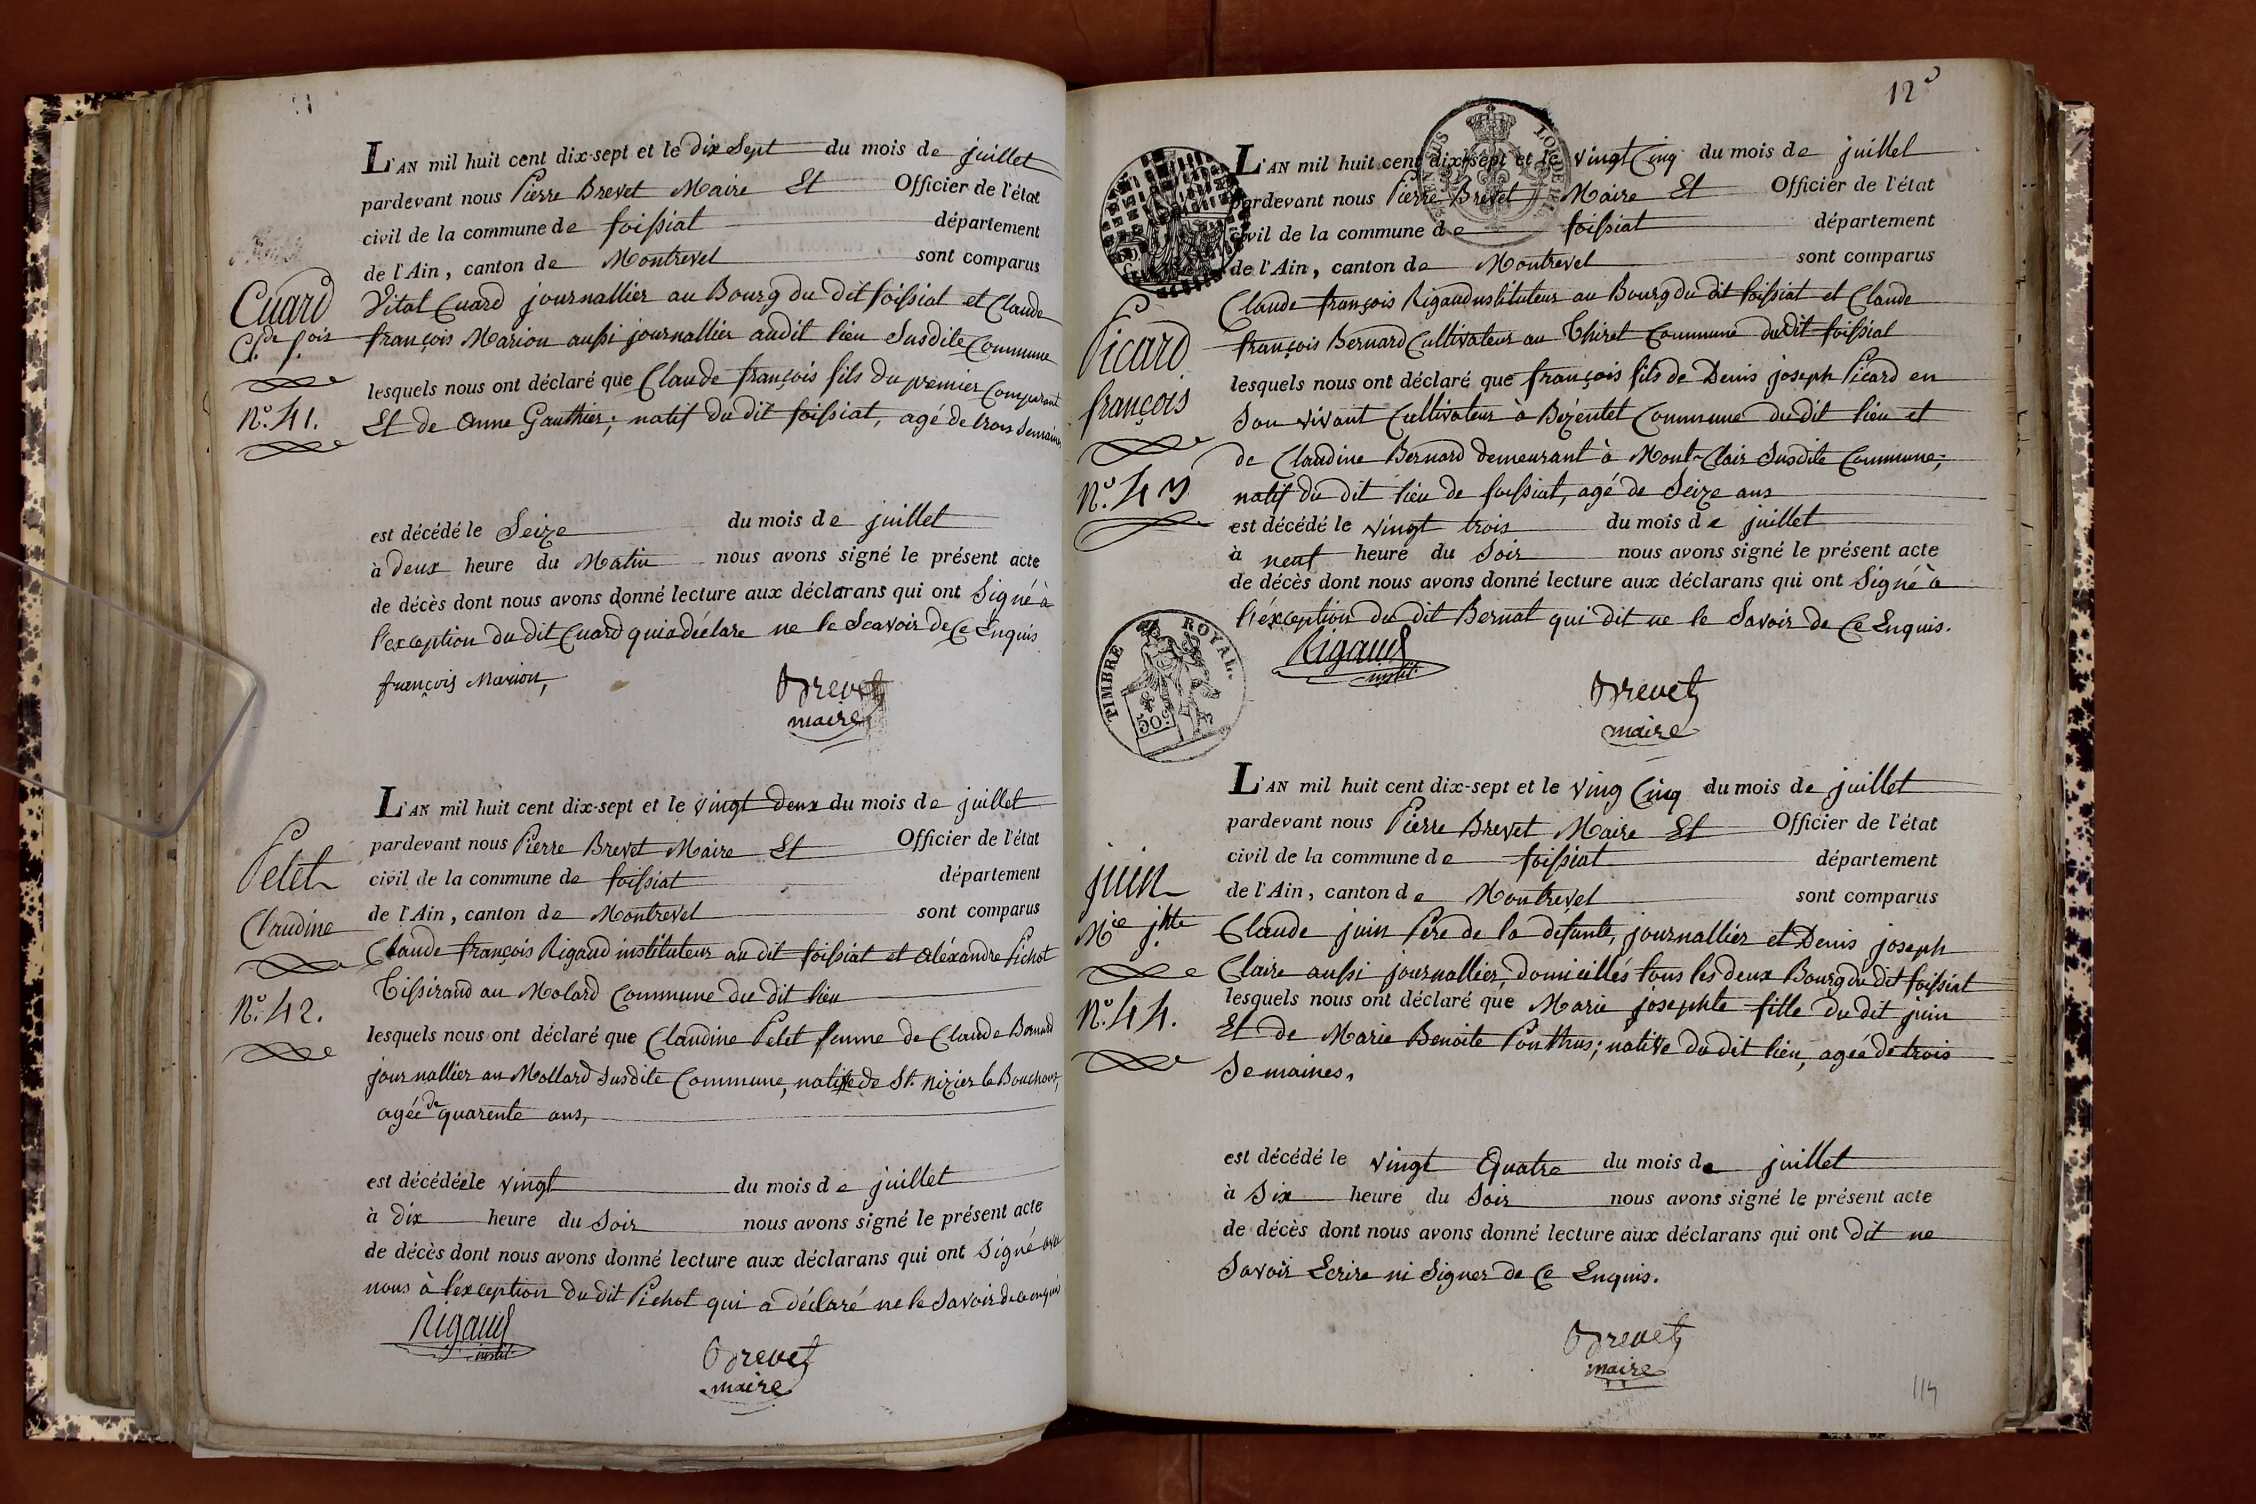 L'AN mil huit cent dix-sept et le dix Sept du mois de juillet
pardevant nous Pierre Brevet Maire Et Officier de l'état
civil de la commune de foissiat département
de l'Ain, canton de Montrevel sont comparus
Vital Cuard journallier au Bourg du dit foissiat et Claude
françois Marion aussi journallier audit lieu Susdite Commune
lesquels nous ont déclaré que Claude françois fils du premier Comparant
Et de Anne Gauthier; natif du dit foissiat, agé de trois Semaines
est décédé le Seize du mois de juillet
à deux heure du Matin nous avons signé le présent acte
de décès dont nous avons donné lecture aux déclarans qui ont Signé à
l'exception du dit Cuard qui a déclare ne le Scavoir de Ce Enquis
françois Marion,
Brevet
maire
Cuard
Cl.de f.ois
N.º 41.
L'AN mil huit cent dix-sept et le vingt deux du mois de juillet
pardevant nous Pierre Brevet Maire Et Officier de l'état
civil de la commune de foissiat département
de l'Ain, canton de Montrevel sont comparus
Claude françois Rigaud instituteur au dit foissiat et Aléxandre Pichot
Tissirand au Molard Commune du dit lieu
lesquels nous ont déclaré que Claudine Petet femme de Claude Bernard
journallier au Mollard Susdite Commune, native de St. Nizier le Bouchoux,
agée de quarente ans,
est décédée le vingt du mois de juillet
à dix heure du Soir nous avons signé le présent acte
de décès dont nous avons donné lecture aux déclarans qui ont Signé avec
nous à l'exception du dit Pichot qui a déclaré ne le Savoir de ce enquis
Rigaud
instit.
Brevet
maire
Petet
Claudine
N.º 42.
12
L'AN mil huit cent dix-sept et le vingt Cinq du mois de juillet
pardevant nous Pierre Brevet Maire Et Officier de l'état
civil de la commune de foissiat département
de l'Ain, canton de Montrevel sont comparus
Claude françois Rigaud instituteur au Bourg du dit foissiat et Claude
françois Bernard Cultivateur au Thiret Commune du dit foissiat
lesquels nous ont déclaré que françois fils de Denis joseph Picard en
Son vivant Cultivateur à Bezentet Commune du dit lieu et
de Claudine Bernard demeurant à Mont-Clair Susdite Commune;
natif du dit lieu de foissiat, agé de Seize ans
est décédé le vingt trois du mois de juillet
à neuf heure du Soir nous avons signé le présent acte
de décès dont nous avons donné lecture aux déclarans qui ont Signé à
l'éxception du dit Bernat qui dit ne le Savoir de Ce Enquis.
Rigaud
instit.
Brevet
maire
Picard
françois
N.º 43
TIMBRE ROYAL.
50c
L'AN mil huit cent dix-sept et le ving Cinq du mois de juillet
pardevant nous Pierre Brevet Maire Et Officier de l'état
civil de la commune de foissiat département
de l'Ain, canton de Montrevel sont comparus
Claude juin Père de la défunte, journalliér et Denis joseph
Claire aussi journallier, domicillés tous les deux Bourg du dit foissiat
lesquels nous ont déclaré que Marie josephte fille du dit juin
Et de Marie Benoite Ponthus; native du dit lieu, agée de trois
Semaines,
est décédé le vingt Quatre du mois de juillet
à Six heure du Soir nous avons signé le présent acte
de décès dont nous avons donné lecture aux déclarans qui ont dit ne
Savoir Ecrire ni Signer de Ce Enquis.
Brevet
maire
juin
M.ie j.hte
N.º 44.